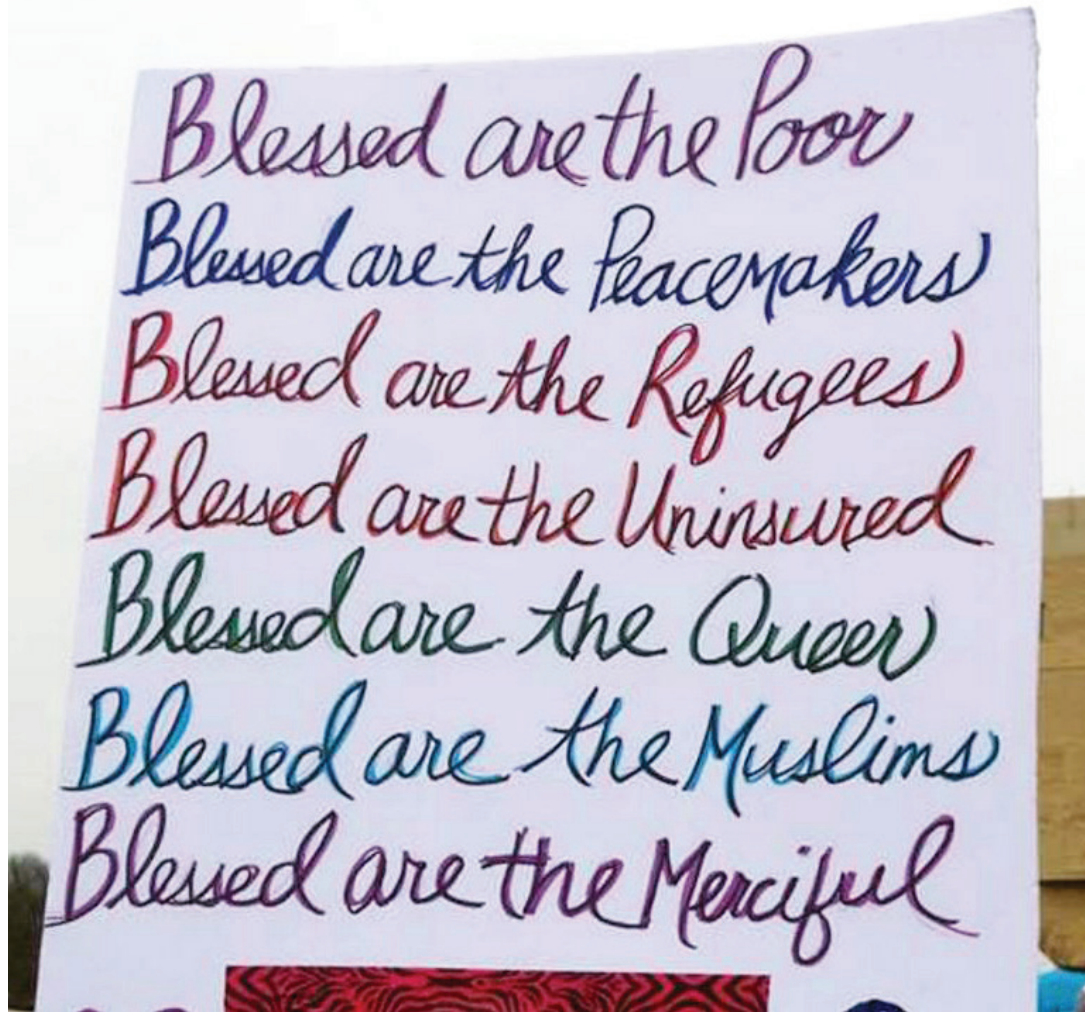 Blessed are the Poor
Blessed are the Peacemakers
Blessed are the Refugees
Blessed are the Uninsured
Blessed are the Queer
Blessed are the Muslims
Blessed are the Merciful